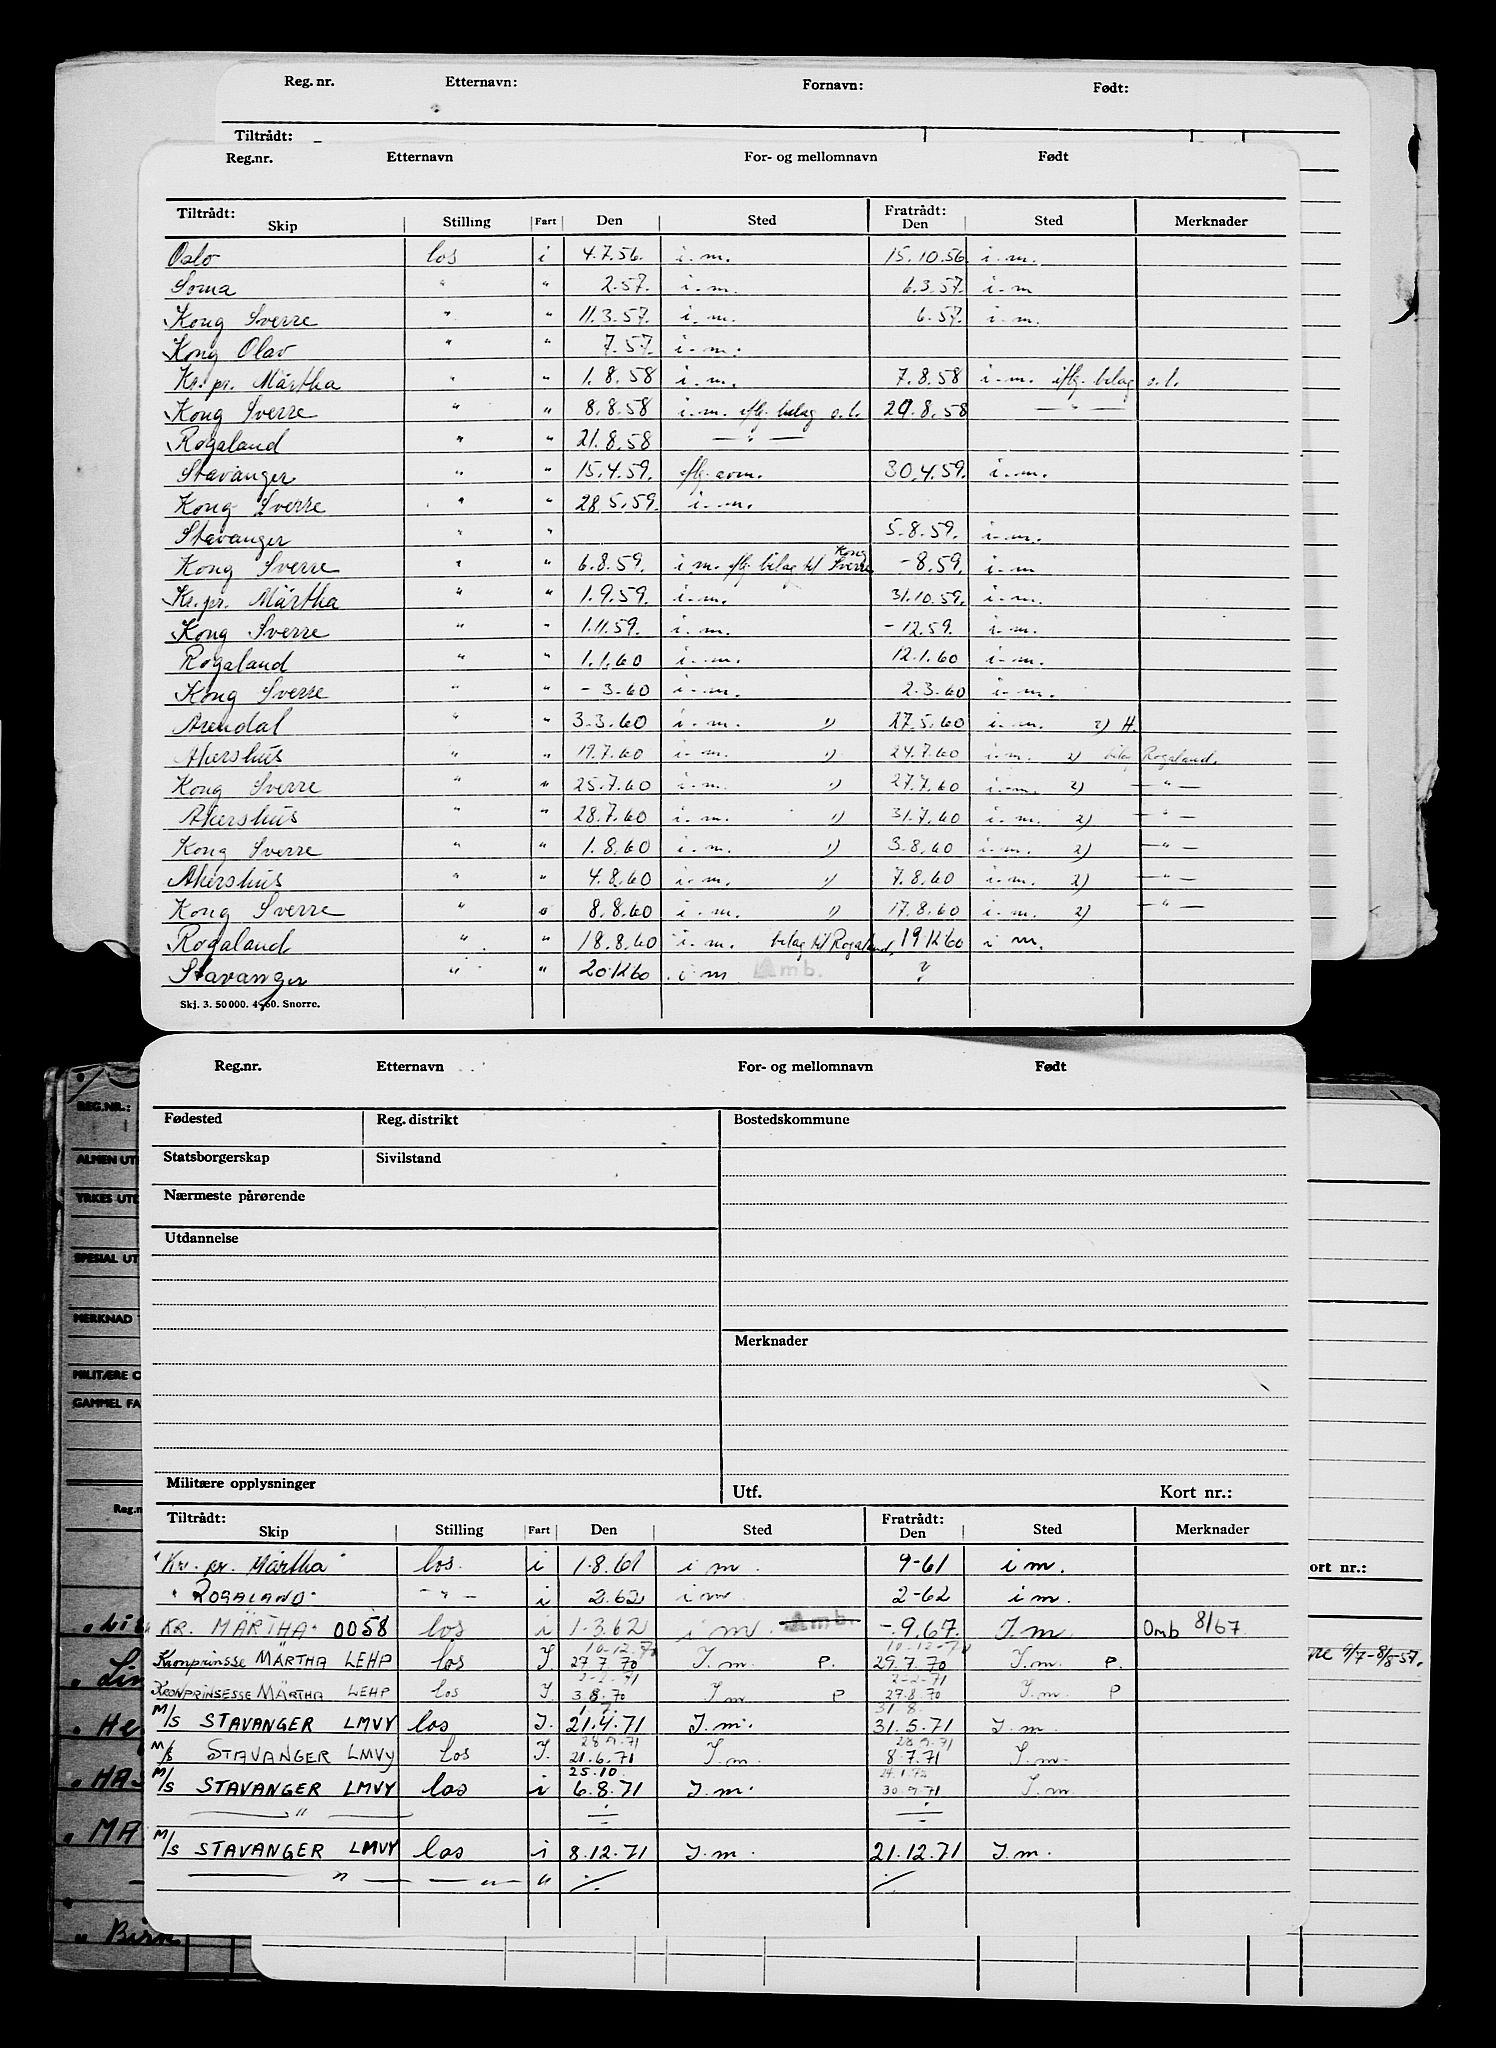 Reg. nr. Etternavn: Fornavn: Født:
Tiltrådt:
Reg.nr. Etternavn For- og mellomnavn Født
Tiltrådt: Skip Stilling Fart Den Sted Fratrådt: Den Sted Merknader
Oslo los i 4.7.56. i.m. 15.10.56 i.m.
Soma " " 2.57. i.m. 6.3.57. i.m
Kong Sverre " " 11.3.57. i.m. 6.57. i.m.
Kong Olav " " 7.57. i.m.
Kr. pr. Märtha " " 1.8.58 i.m. 7.8.58 i.m. iflg. bilag o.l.
Kong Sverre " " 8.8.58 i.m. iflg. bilag o.l. 20.8.58 — " —
Rogaland " " 21.8.58 — " —
Stavanger " " 15.4.59. iflg. avm. 30.4.59. i.m.
Kong Sverre " " 28.5.59. i.m.
Stavanger " " 5.8.59. i.m.
Kong Sverre " " 6.8.59. i m. iflg. bilag til Kong Sverre -8.59. i.m
Kr. pr. Märtha " " 1.9.59. i.m. 31.10.59. i.m.
Kong Sverre " " 1.11.59. i.m. -12.59. i.m.
Rogaland " " 1.1.60 i.m. 12.1.60 i.m.
Kong Sverre " " -3.60 i.m. 2.3.60 i.m.
Arendal " " 3.3.60 i.m. 1) 27.5.60 i.m. 2) H.
Akershus " " 19.7.60 i.m. 1) 24.7.60 i.m. 2) bilag Rogaland.
Kong Sverre " " 25.7.60 i.m. 1) 27.7.60 i.m. 2) — " —
Akershus " " 28.7.60 i.m. 1) 31.7.60 i.m. 2) — " —
Kong Sverre " " 1.8.60 i.m. 1) 3.8.60 i.m. 2) — " —
Akershus " " 4.8.60 i.m. 1) 7.8.60 i.m. 2) — " —
Kong Sverre " " 8.8.60 i.m. 1) 17.8.60 i.m. 2) — " —
Rogaland " " 18.8.60 i.m. bilag til Rogaland. 19.12.60 i m.
Stavanger " " 20.12.60 i m Amb. ?
Skj. 3. 50000. 4-60. Snorre.
Reg.nr. Etternavn For- og mellomnavn Født
Fødested Reg. distrikt Bostedskommune
Statsborgerskap Sivilstand
Nærmeste pårørende
Utdannelse
Merknader
Militære opplysninger Utf. Kort nr.:
Tiltrådt: Skip Stilling Fart Den Sted Fratrådt: Den Sted Merknader
"Kr. pr. Märtha" los. i 1.8.61 i m. 9-61 i m.
"ROGALAND" — " — i 2.62 i m 2-62 i m.
KR. MÄRTHA" 0058 los i 1-3.62 i m. Amb. -9.67. I.m Omb 8/67
10-12.70 10-12-70
Kronprinsse MÄRTHA LEHP los I. 27.7.70 I.m. P. 29.7.70 I.m. P.
2-2-71 2-2-71
KRONPRINSESSE MÄRTHA LEHP los I. 3.8.70 I.m P 27.8.70 I.m. P
1.7. 31.8.
M/S STAVANGER LMVY los I. 21.4.71 I.m. 31.5.71 I.m.
28.9.71 28.9.71
M/S STAVANGER LMVY los I. 21.6.71 I.m. 8.7.71 I.m.
25.10. 24.1.72
M/S STAVANGER LMVY los i 6.8.71 I.m. 30.9.71 I.m.
— " — ÷ ÷
M/S STAVANGER LMVY los i 8.12.71 I.m. 21.12.71 I.m.
— " — — " — " ÷ ÷
REG.NR.:
ALMEN UT
YRKES UTD
SPESIAL UT
MERKNAD
MILITÆRE O
GAMMEL FA
Reg.n
Lin
He
HAS
MA
" Birn
ort nr.:
re 9/7-8/8-57.